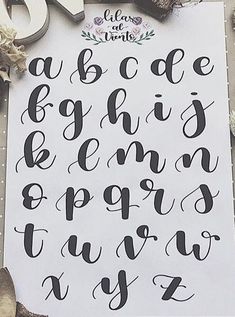 Lilas
al
Viento
a b c d e
f g h i j
k l m n
o p q r s
t u v w
x y z